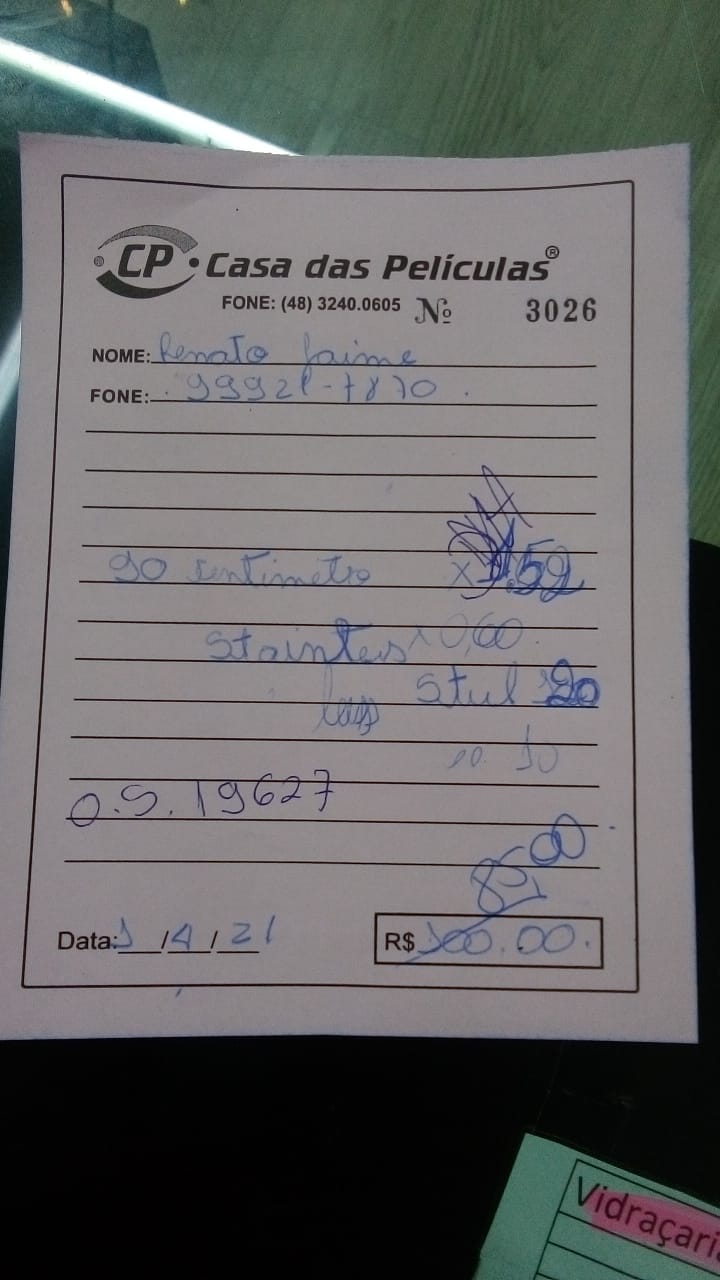 CP Casa das Películas®
FONE: (48) 3240.0605 Nº 3026
NOME: Renato Jaime
FONE: 99921-7870
90 centimetro x 1.52
x 0,60
20
10
O.S. 19627
85,00
Data: 1/4/21 R$ 100.00
Vidraçari